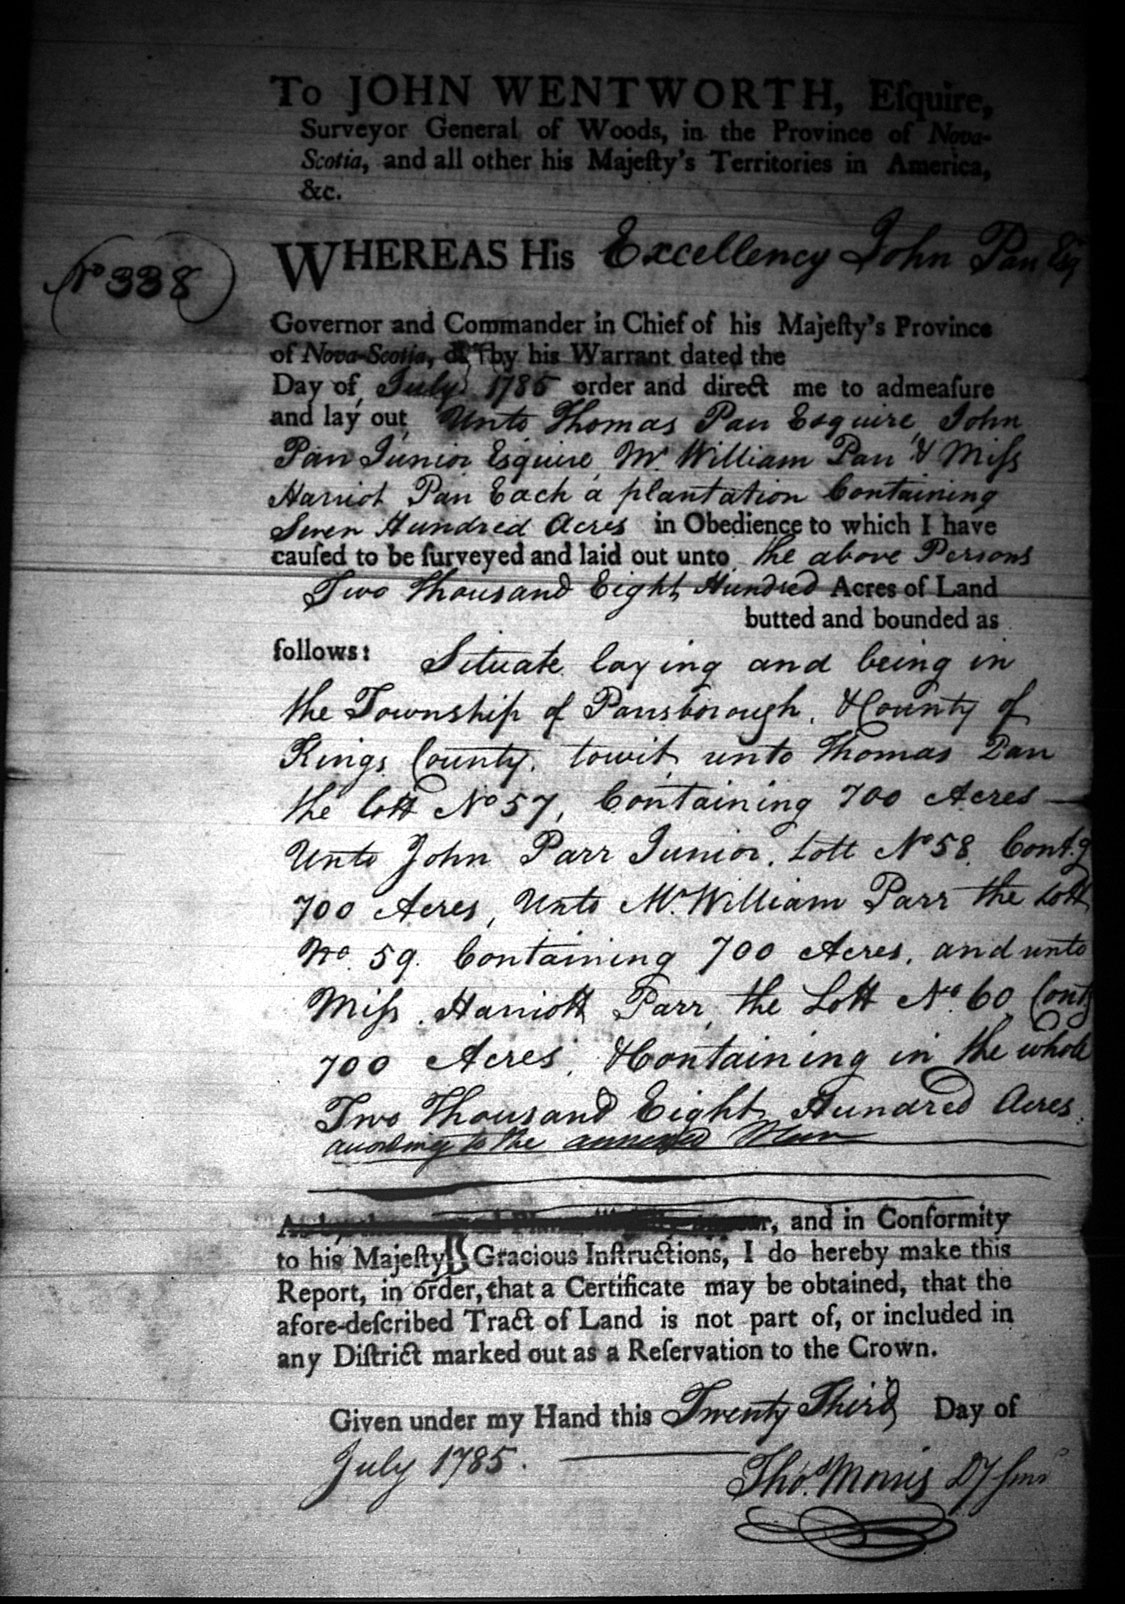 To JOHN WENTWORTH, Esquire,
Surveyor General of Woods, in the Province of Nova-
Scotia, and all other his Majesty's Territories in America,
&c.
No 338
WHEREAS His Excellency John Parr Esq
Governor and Commander in Chief of his Majesty's Province
of Nova-Scotia, by his Warrant dated the
Day of July 1785 order and direct me to admeasure
and lay out Unto Thomas Parr Esquire, John
Parr Junior Esquire, Mr William Parr & Miss
Harriot Parr Each a plantation Containing
Seven Hundred Acres in Obedience to which I have
caused to be surveyed and laid out unto the above Persons
Two Thousand Eight Hundred Acres of Land
butted and bounded as
follows: Situate laying and being in
the Township of Parrsborough, & County of
Kings County, towit, unto Thomas Parr
the lott No 57, Containing 700 Acres
Unto John Parr Junior, Lott No 58, Contg
700 Acres, Unto Mr William Parr the Lott
No. 59. Containing 700 Acres, and unto
Miss Harriott Parr the Lott No. 60 Contg
700 Acres, & Containing in the whole
Two Thousand Eight Hundred Acres.
according to the annexed Plan
, and in Conformity
to his Majesty's Gracious Instructions, I do hereby make this
Report, in order, that a Certificate may be obtained, that the
afore-described Tract of Land is not part of, or included in
any District marked out as a Reservation to the Crown.
Given under my Hand this Twenty Third Day of
July 1785.
Thos. Morris Dy Surr